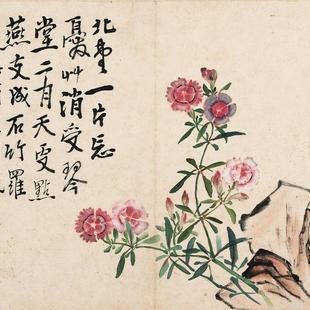 北堂一片忘
憂艸消受琴
堂二月天更點
燕支成石竹羅